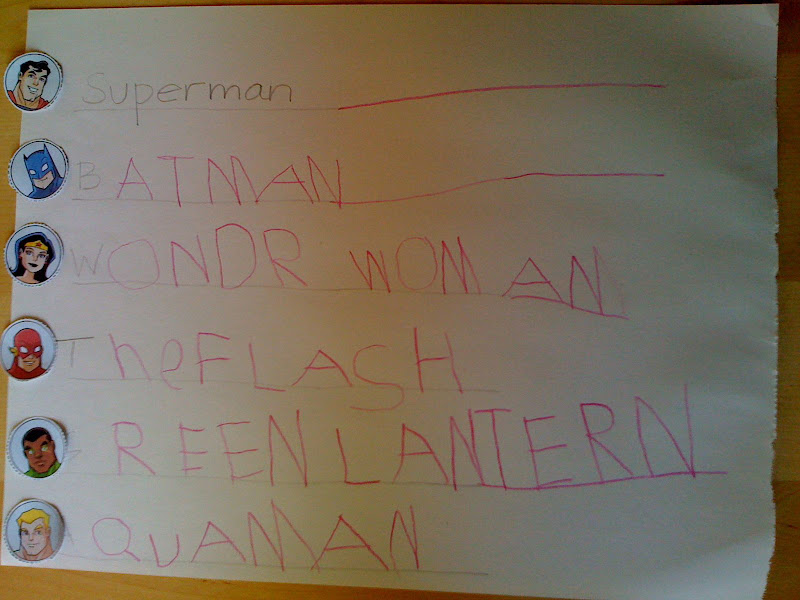 Superman
BATMAN
WONDR WOMAN
TheFLASH
GREEN LANTERN
AQUAMAN